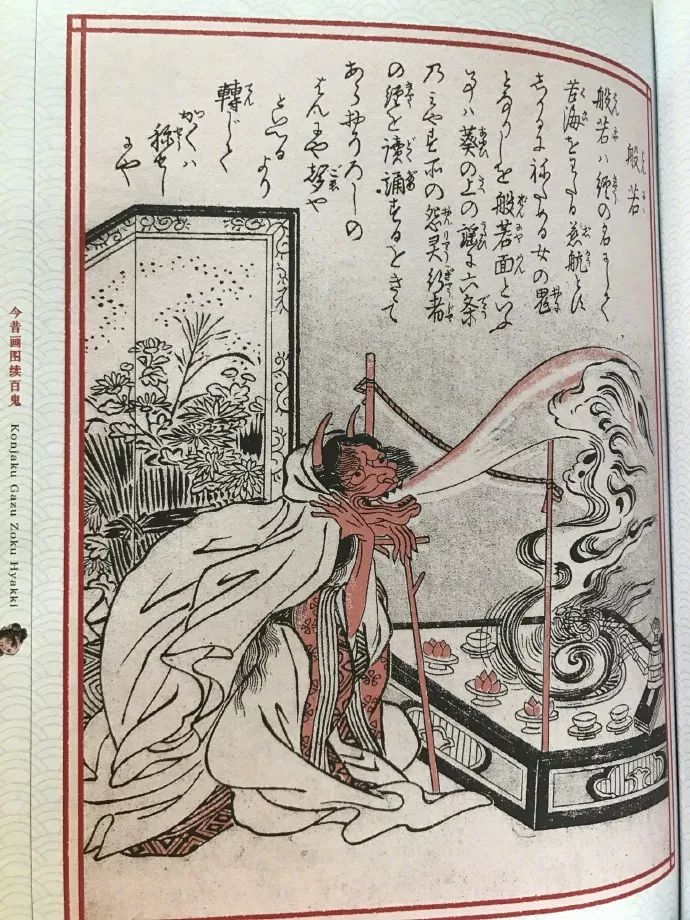 般若
般若ハ經の名にして
苦海をわたる慈航とす
しかるにねためる女の鬼
となりしを般若面といふ
事ハ葵の上の謡に六条
乃みやす所の怨灵行者
の經を讀誦するをきゝて
あらおそろしの
はんにや声や
といへるより
轉じて
かくハ
称せし
にや
今昔画图续百鬼 Konjaku Gazu Zoku Hyakki